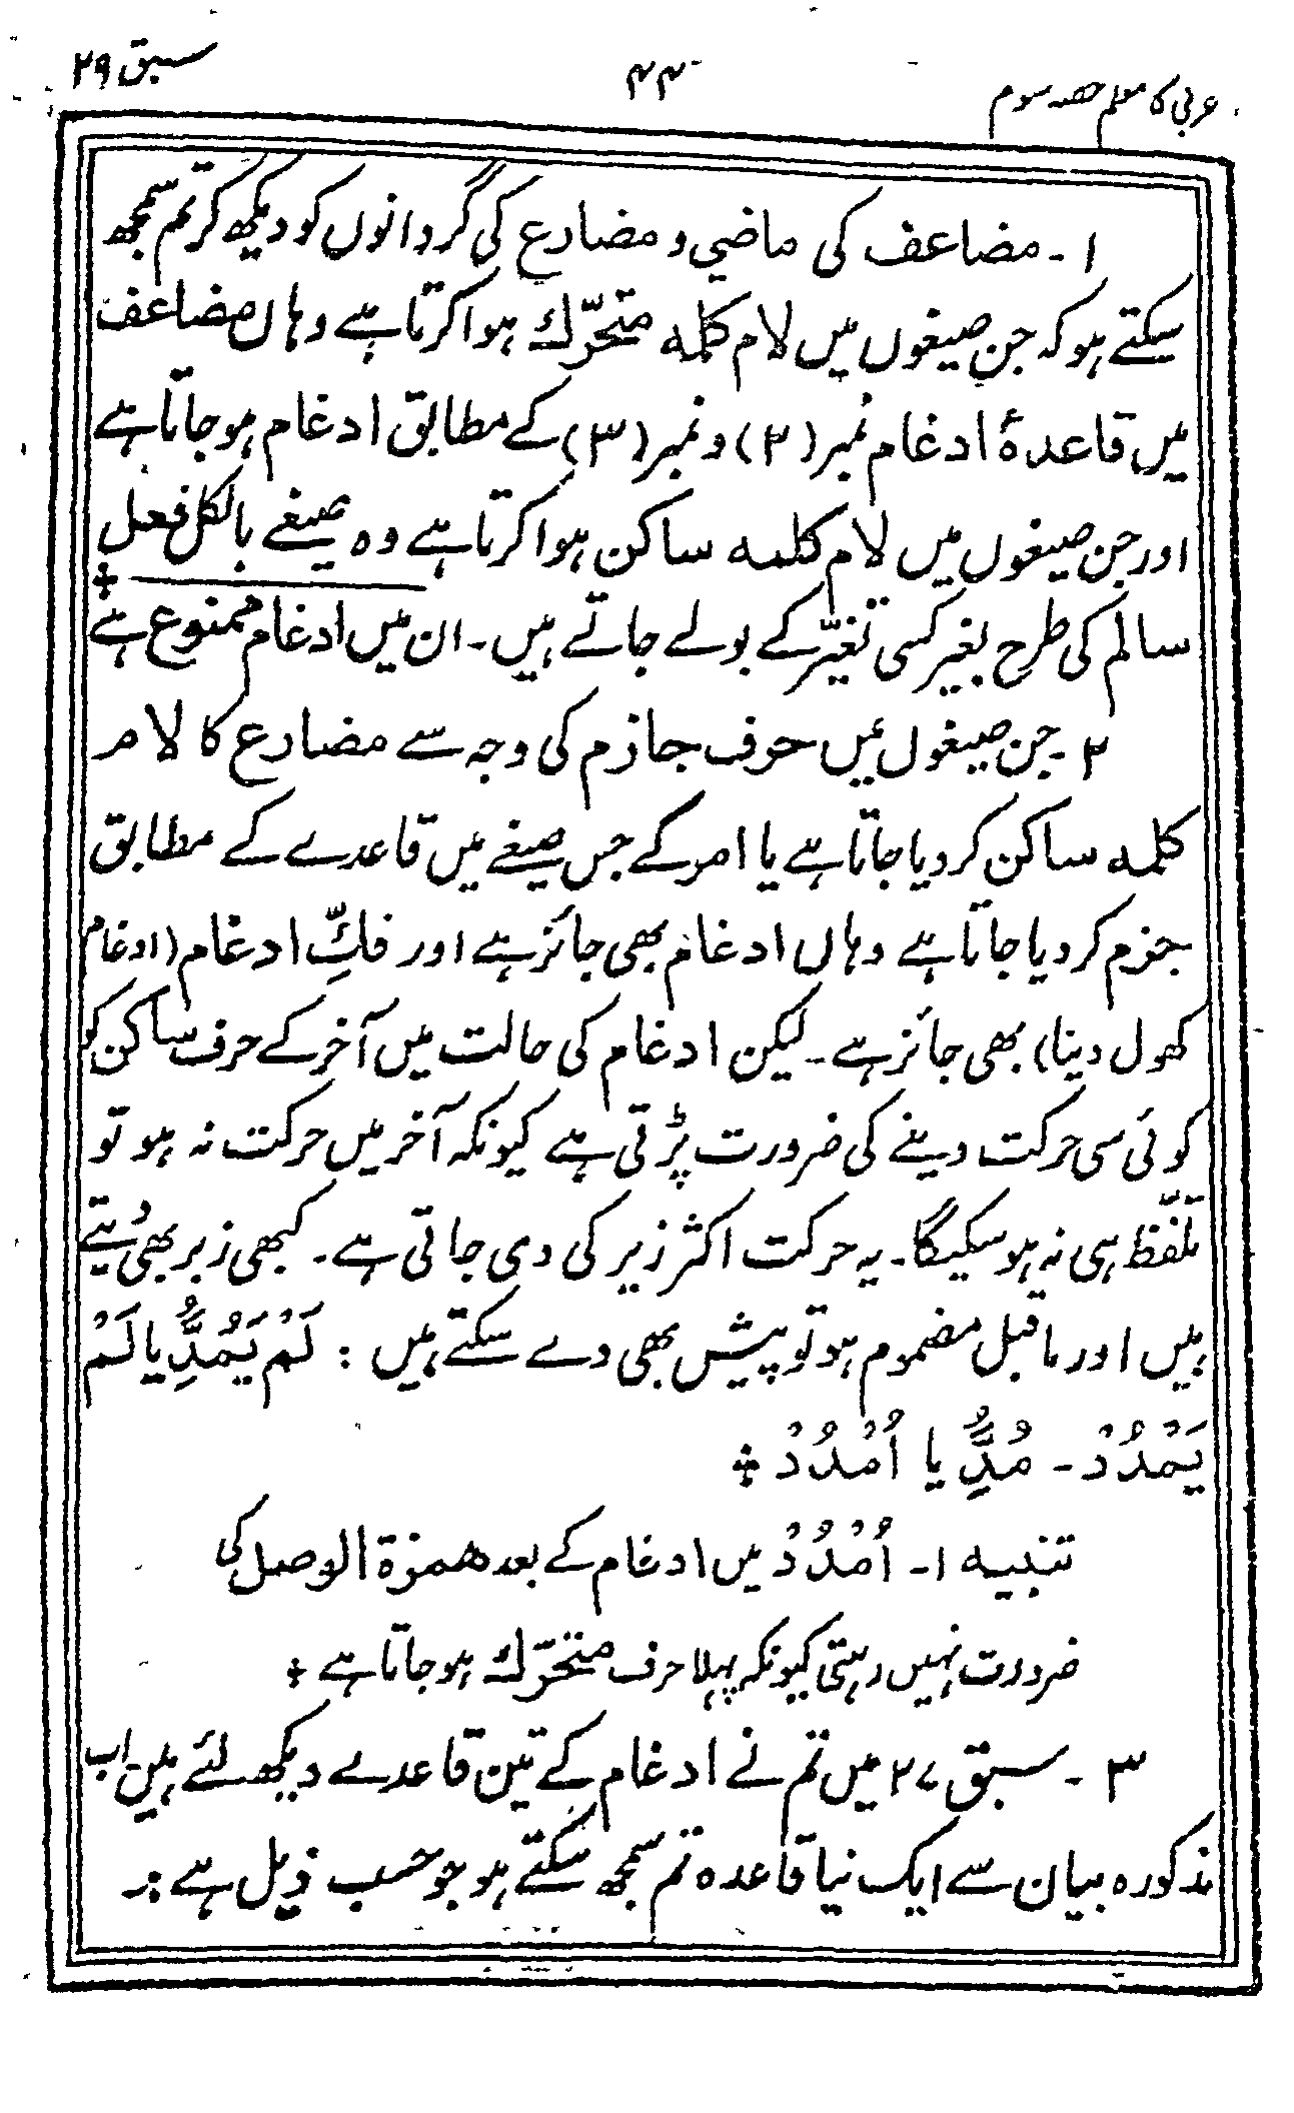 عربی کا معلم حصہ سوم
۴۴
سبق ۲۹
۱۔ مضاعف کی ماضی و مضارع کی گردانوں کو دیکھ کر تم سمجھ
سکتے ہو کہ جن صیغوں میں لام کلمہ متحرّک ہوا کرتا ہے وہاں مضاعف
میں قاعدۂ ادغام نمبر (۲) و نمبر (۳) کے مطابق ادغام ہو جاتا ہے
اور جن صیغوں میں لام کلمہ ساکن ہوا کرتا ہے وہ صیغے بالکل فعل
سالم کی طرح بغیر کسی تغیّر کے بولے جاتے ہیں۔ ان میں ادغام ممنوع ہے ÷
۲۔ جن صیغوں میں حرف جازم کی وجہ سے مضارع کا لام
کلمہ ساکن کر دیا جاتا ہے یا امر کے جس صیغے میں قاعدے کے مطابق
جزم کر دیا جاتا ہے وہاں ادغام بھی جائز ہے اور فکِّ ادغام (ادغام
کھول دینا) بھی جائز ہے۔ لیکن ادغام کی حالت میں آخر کے حرف ساکن کو
کوئی سی حرکت دینے کی ضرورت پڑتی ہے کیونکہ آخر میں حرکت نہ ہو تو
تلفّظ ہی نہ ہو سکیگا۔ یہ حرکت اکثر زیر کی دی جاتی ہے۔ کبھی زبر بھی دیتے
ہیں اور ماقبل مضموم ہو تو پیش بھی دے سکتے ہیں: لَمْ یَمُدَِّؐ یا لَمْ
یَمْدُدْ۔ مُدَُِّ یا اُمْدُدْ ÷
تنبیہ ۱۔ اُمْدُدْ میں ادغام کے بعد ھمزۃ الوصل کی
ضرورت نہیں رہتی کیونکہ پہلا حرف متحرّک ہو جاتا ہے ÷
۳۔ سبق ۲۷ میں تم نے ادغام کے تین قاعدے دیکھ لئے ہیں اب
مذکورہ بیان سے ایک نیا قاعدہ تم سمجھ سکتے ہو جو حسب ذیل ہے:۔